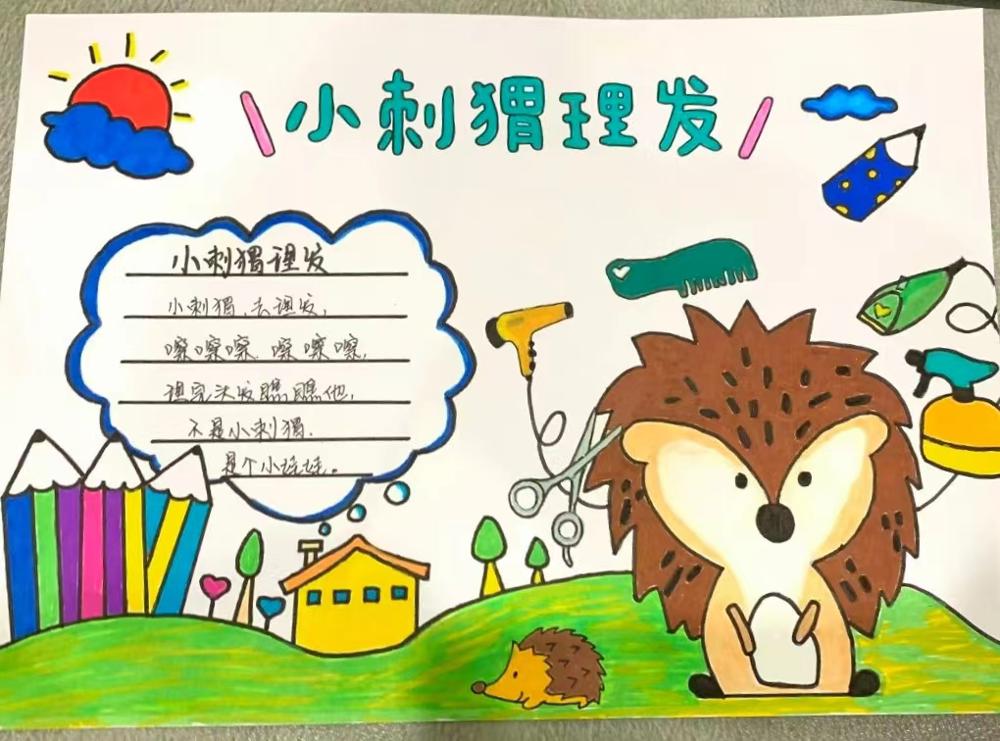 小刺猬理发
小刺猬理发
小刺猬,去理发,
嚓嚓嚓,嚓嚓嚓,
理完头发瞧瞧他,
不是小刺猬,
是个小娃娃。